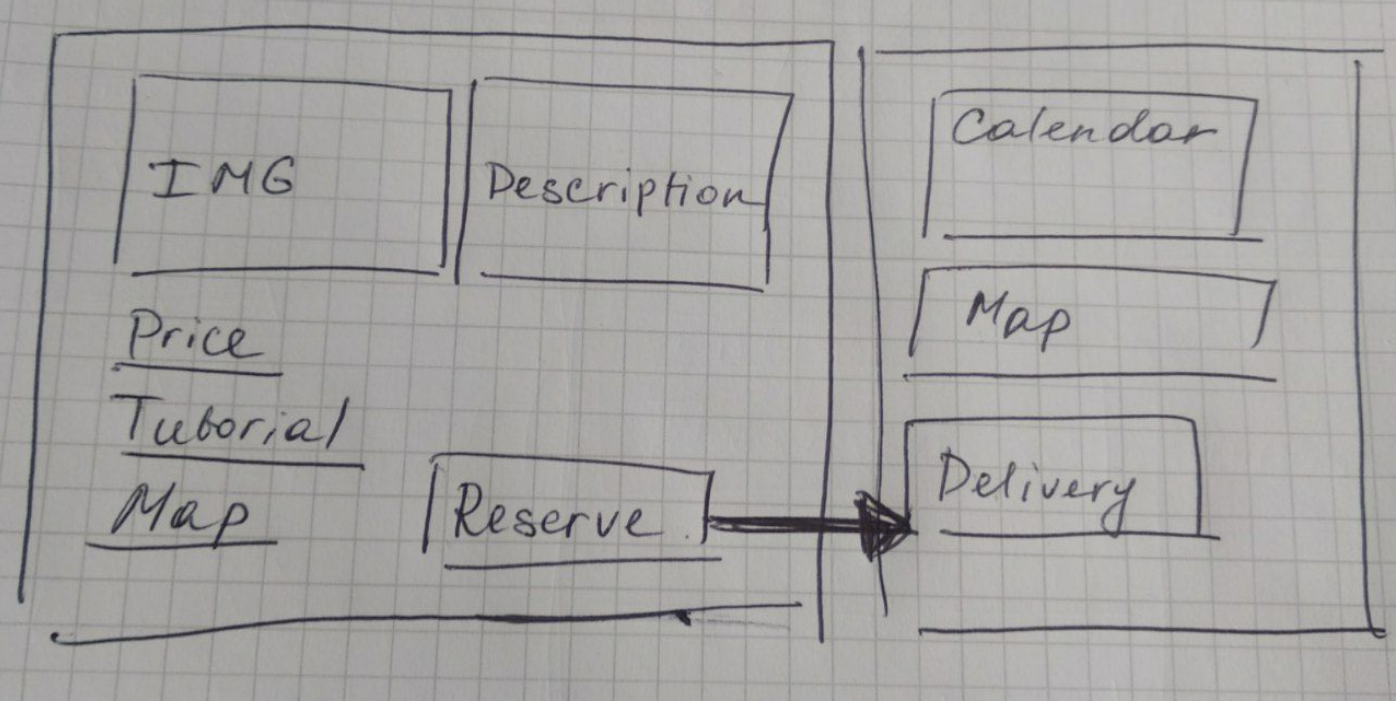 IMG
Description
Price
Tutorial
Map
Reserve
Calendar
Map
Delivery